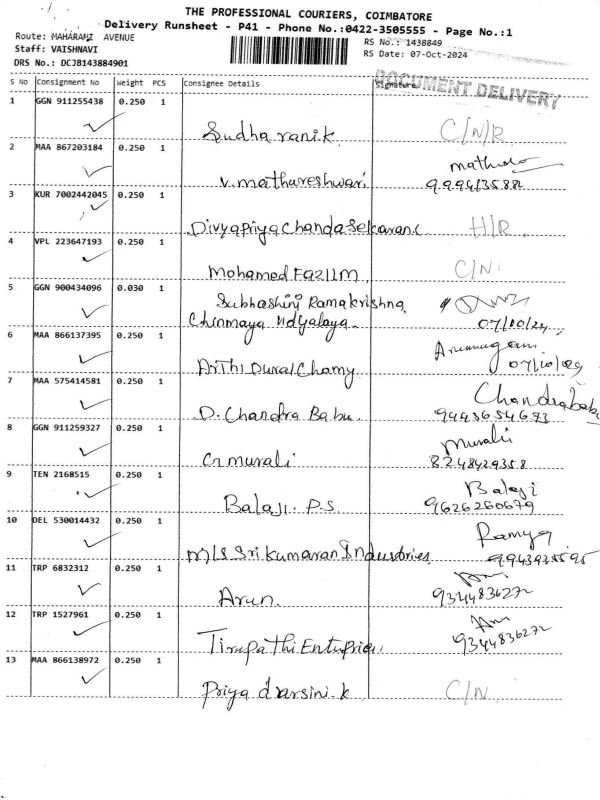 THE PROFESSIONAL COURIERS, COIMBATORE
Delivery Runsheet - P41 - Phone No.:0422-3505555 - Page No.:1
Route: MAHARANI AVENUE
RS No.: 1438849
Staff: VAISHNAVI
RS Date: 07-Oct-2024
DRS No.: DCJB143884901
DOCUMENT DELIVERY
S No Consignment No Weight PCS Consignee Details Signature
1 GGN 911255438 0.250 1
Sudha ranik C/N/R
2 MAA 867203184 0.250 1
V. mathureshwari
3 KUR 7002442045 0.250 1
H/R
4 VPL 223647193 0.250 1
Mohamed Fazilm C/N
5 GGN 900434096 0.030 1
Subhashini Ramakrishna
Chinmaya Vidyalaya 07/10/24
6 MAA 866137395 0.250 1
Arumugam
Arthi Durai Chamy 07/10/24
7 MAA 575414581 0.250 1
Chandrababu
D. Chandra Babu 9443654673
8 GGN 911259327 0.250 1
Murali
8248429358
9 TEN 2168515 0.250 1
Balaji
Balaji. P.S 9626260679
10 DEL 530014432 0.250 1
Ramya
M/s Sri Kumaran Industries
11 TRP 6832312 0.250 1
Arun 9344836272
12 TRP 1527961 0.250 1
Tirupathi 9344836272
13 MAA 866138972 0.250 1
Priya darsini. k C/N